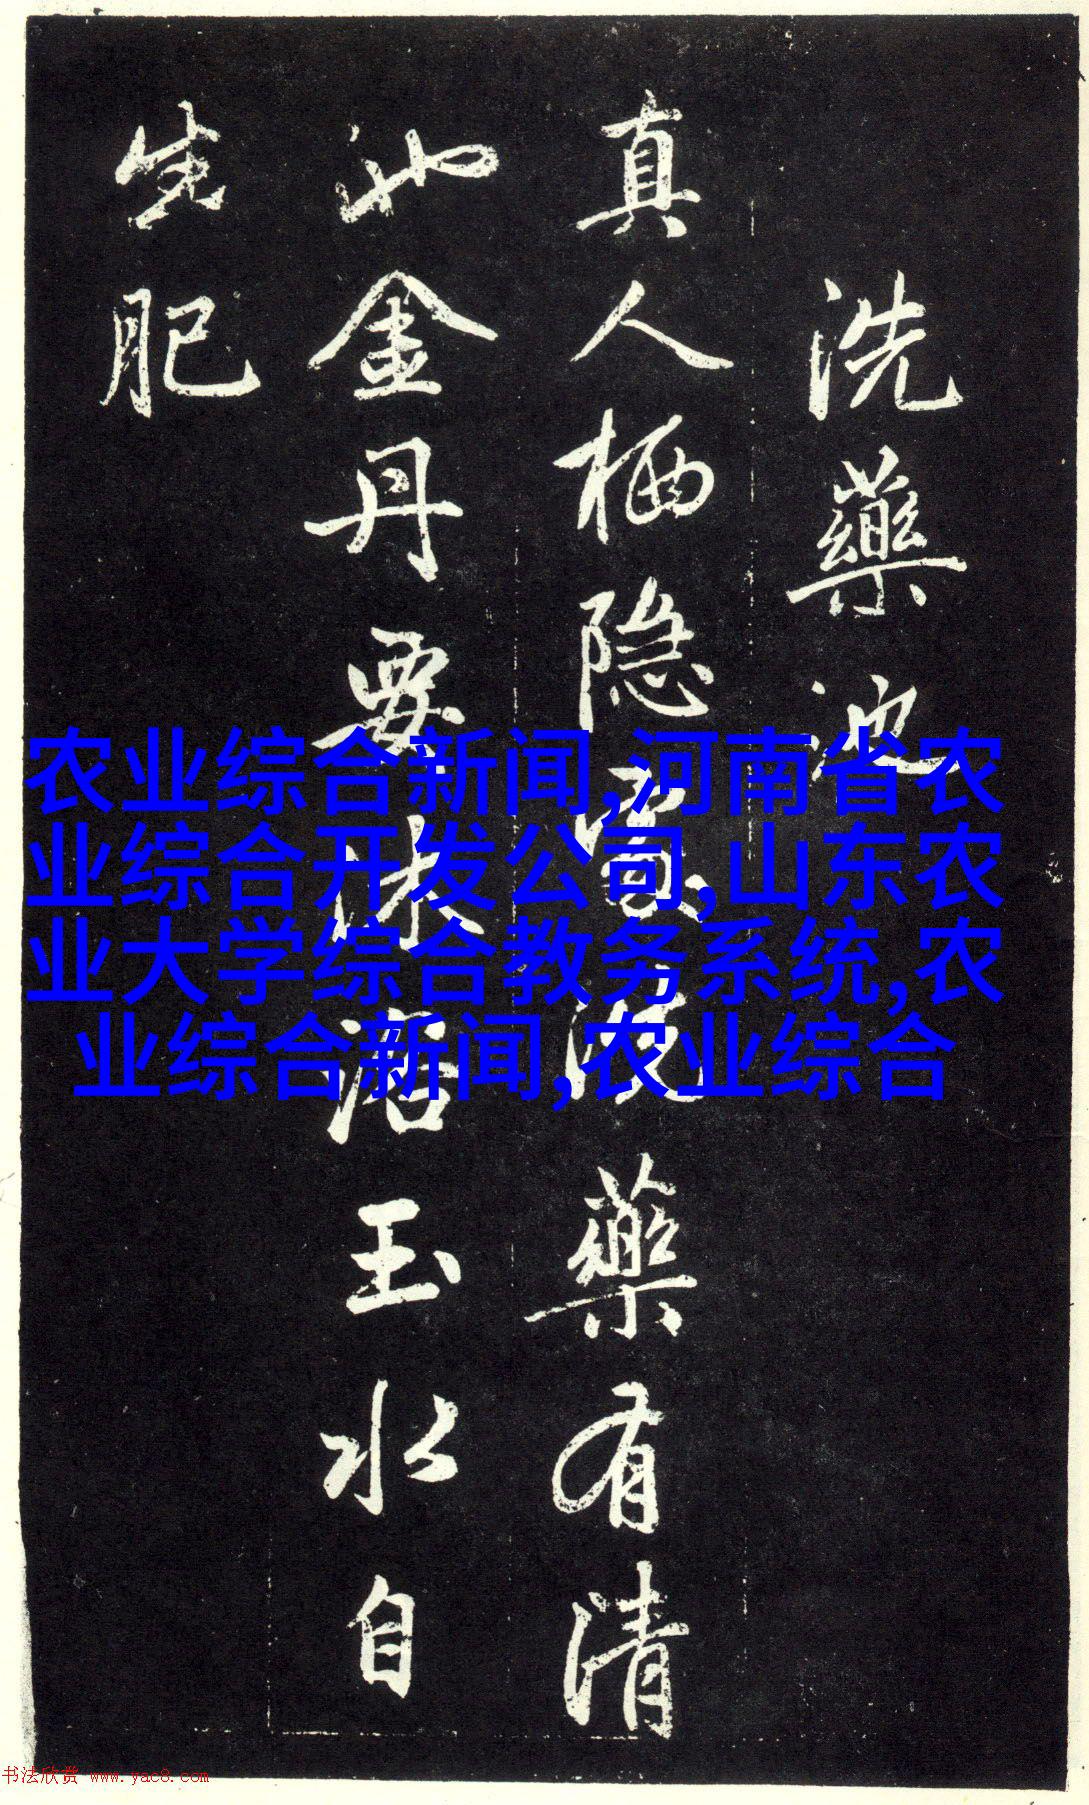 洗藥池
真人栖隐處洗藥有清
池金丹要沐浴玉水自
生肥
农业综合新闻,河南省农
业综合开发公司,山东农
业大学综合教务系统,农
业综合新闻,农业综合
书法欣赏 www.yac8.com